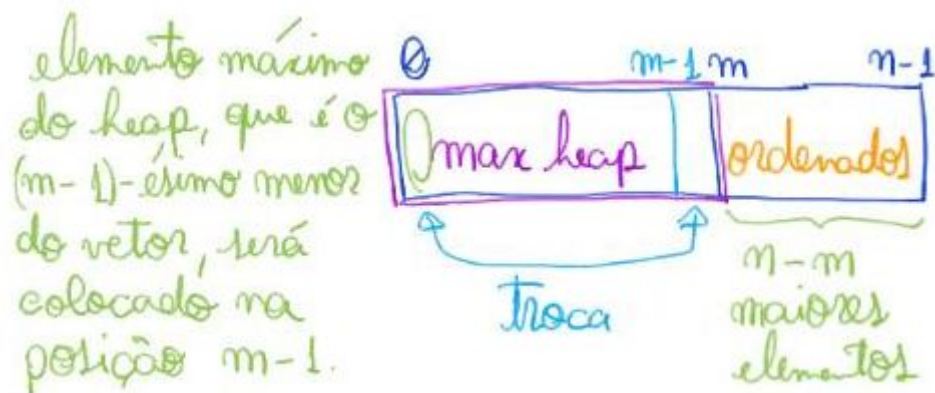 elemento máximo
do heap, que é o
(m-1)-ésimo menor
do vetor, será
colocado na
posição m-1.
0 m-1 m n-1
max heap ordenados
Troca
n-m
maiores
elementos